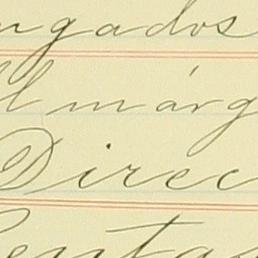 ngados
l márg
Direc
entas